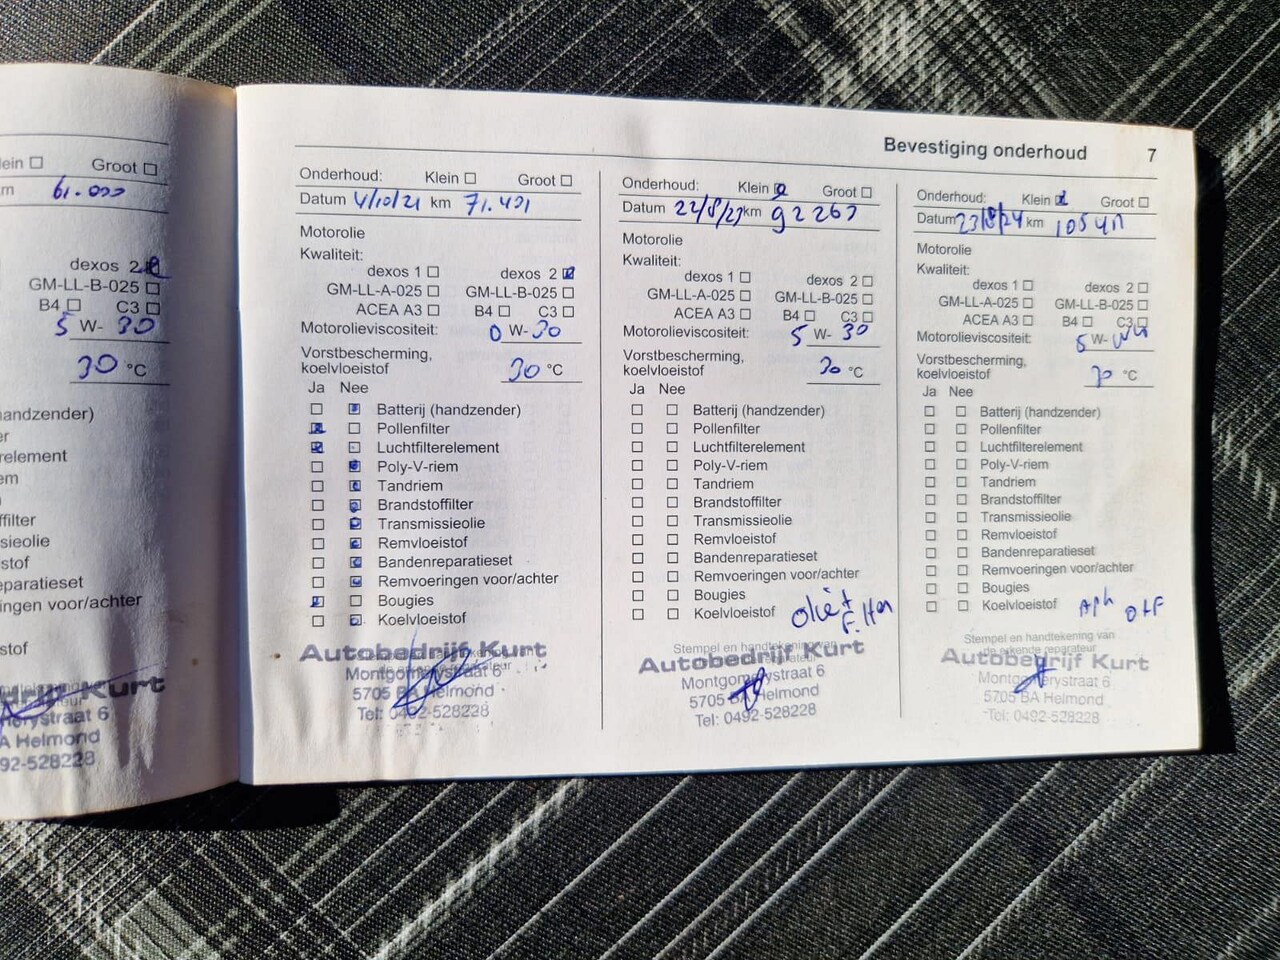 Bevestiging onderhoud 7
Klein Groot
61.000
dexos 2
GM-LL-B-025
B4 C3
5 W- 30
30 °C
handzender)
element
filter
sieolie
stof
eparatieset
ingen voor/achter
stof
Kurt
erystraat 6
A Helmond
92-528228
Onderhoud: Klein Groot
Datum 4/10/21 km 71.491
Motorolie
Kwaliteit:
dexos 1 dexos 2
GM-LL-A-025 GM-LL-B-025
ACEA A3 B4 C3
Motorolieviscositeit: 0 W- 30
Vorstbescherming,
koelvloeistof 30 °C
Ja Nee
Batterij (handzender)
Pollenfilter
Luchtfilterelement
Poly-V-riem
Tandriem
Brandstoffilter
Transmissieolie
Remvloeistof
Bandenreparatieset
Remvoeringen voor/achter
Bougies
Koelvloeistof
Autobedrijf Kurt
Montgomerystraat 6
5705 BA Helmond
Tel: 0492-528228
Onderhoud: Klein Groot
Datum 22/8/23 km 92263
Motorolie
Kwaliteit:
dexos 1 dexos 2
GM-LL-A-025 GM-LL-B-025
ACEA A3 B4 C3
Motorolieviscositeit: 5 W- 30
Vorstbescherming,
koelvloeistof 30 °C
Ja Nee
Batterij (handzender)
Pollenfilter
Luchtfilterelement
Poly-V-riem
Tandriem
Brandstoffilter
Transmissieolie
Remvloeistof
Bandenreparatieset
Remvoeringen voor/achter
Bougies
Koelvloeistof
Stempel en handtekening van
Autobedrijf Kurt
Montgomerystraat 6
5705 BA Helmond
Tel: 0492-528228
Onderhoud: Klein Groot
Datum 23/8/24 km
Motorolie
Kwaliteit:
dexos 1 dexos 2
GM-LL-A-025 GM-LL-B-025
ACEA A3 B4 C3
Motorolieviscositeit: 5 W-
Vorstbescherming,
koelvloeistof °C
Ja Nee
Batterij (handzender)
Pollenfilter
Luchtfilterelement
Poly-V-riem
Tandriem
Brandstoffilter
Transmissieolie
Remvloeistof
Bandenreparatieset
Remvoeringen voor/achter
Bougies
Koelvloeistof
Stempel en handtekening van
de erkende reparateur
Autobedrijf Kurt
Montgomerystraat 6
5705 BA Helmond
Tel: 0492-528228